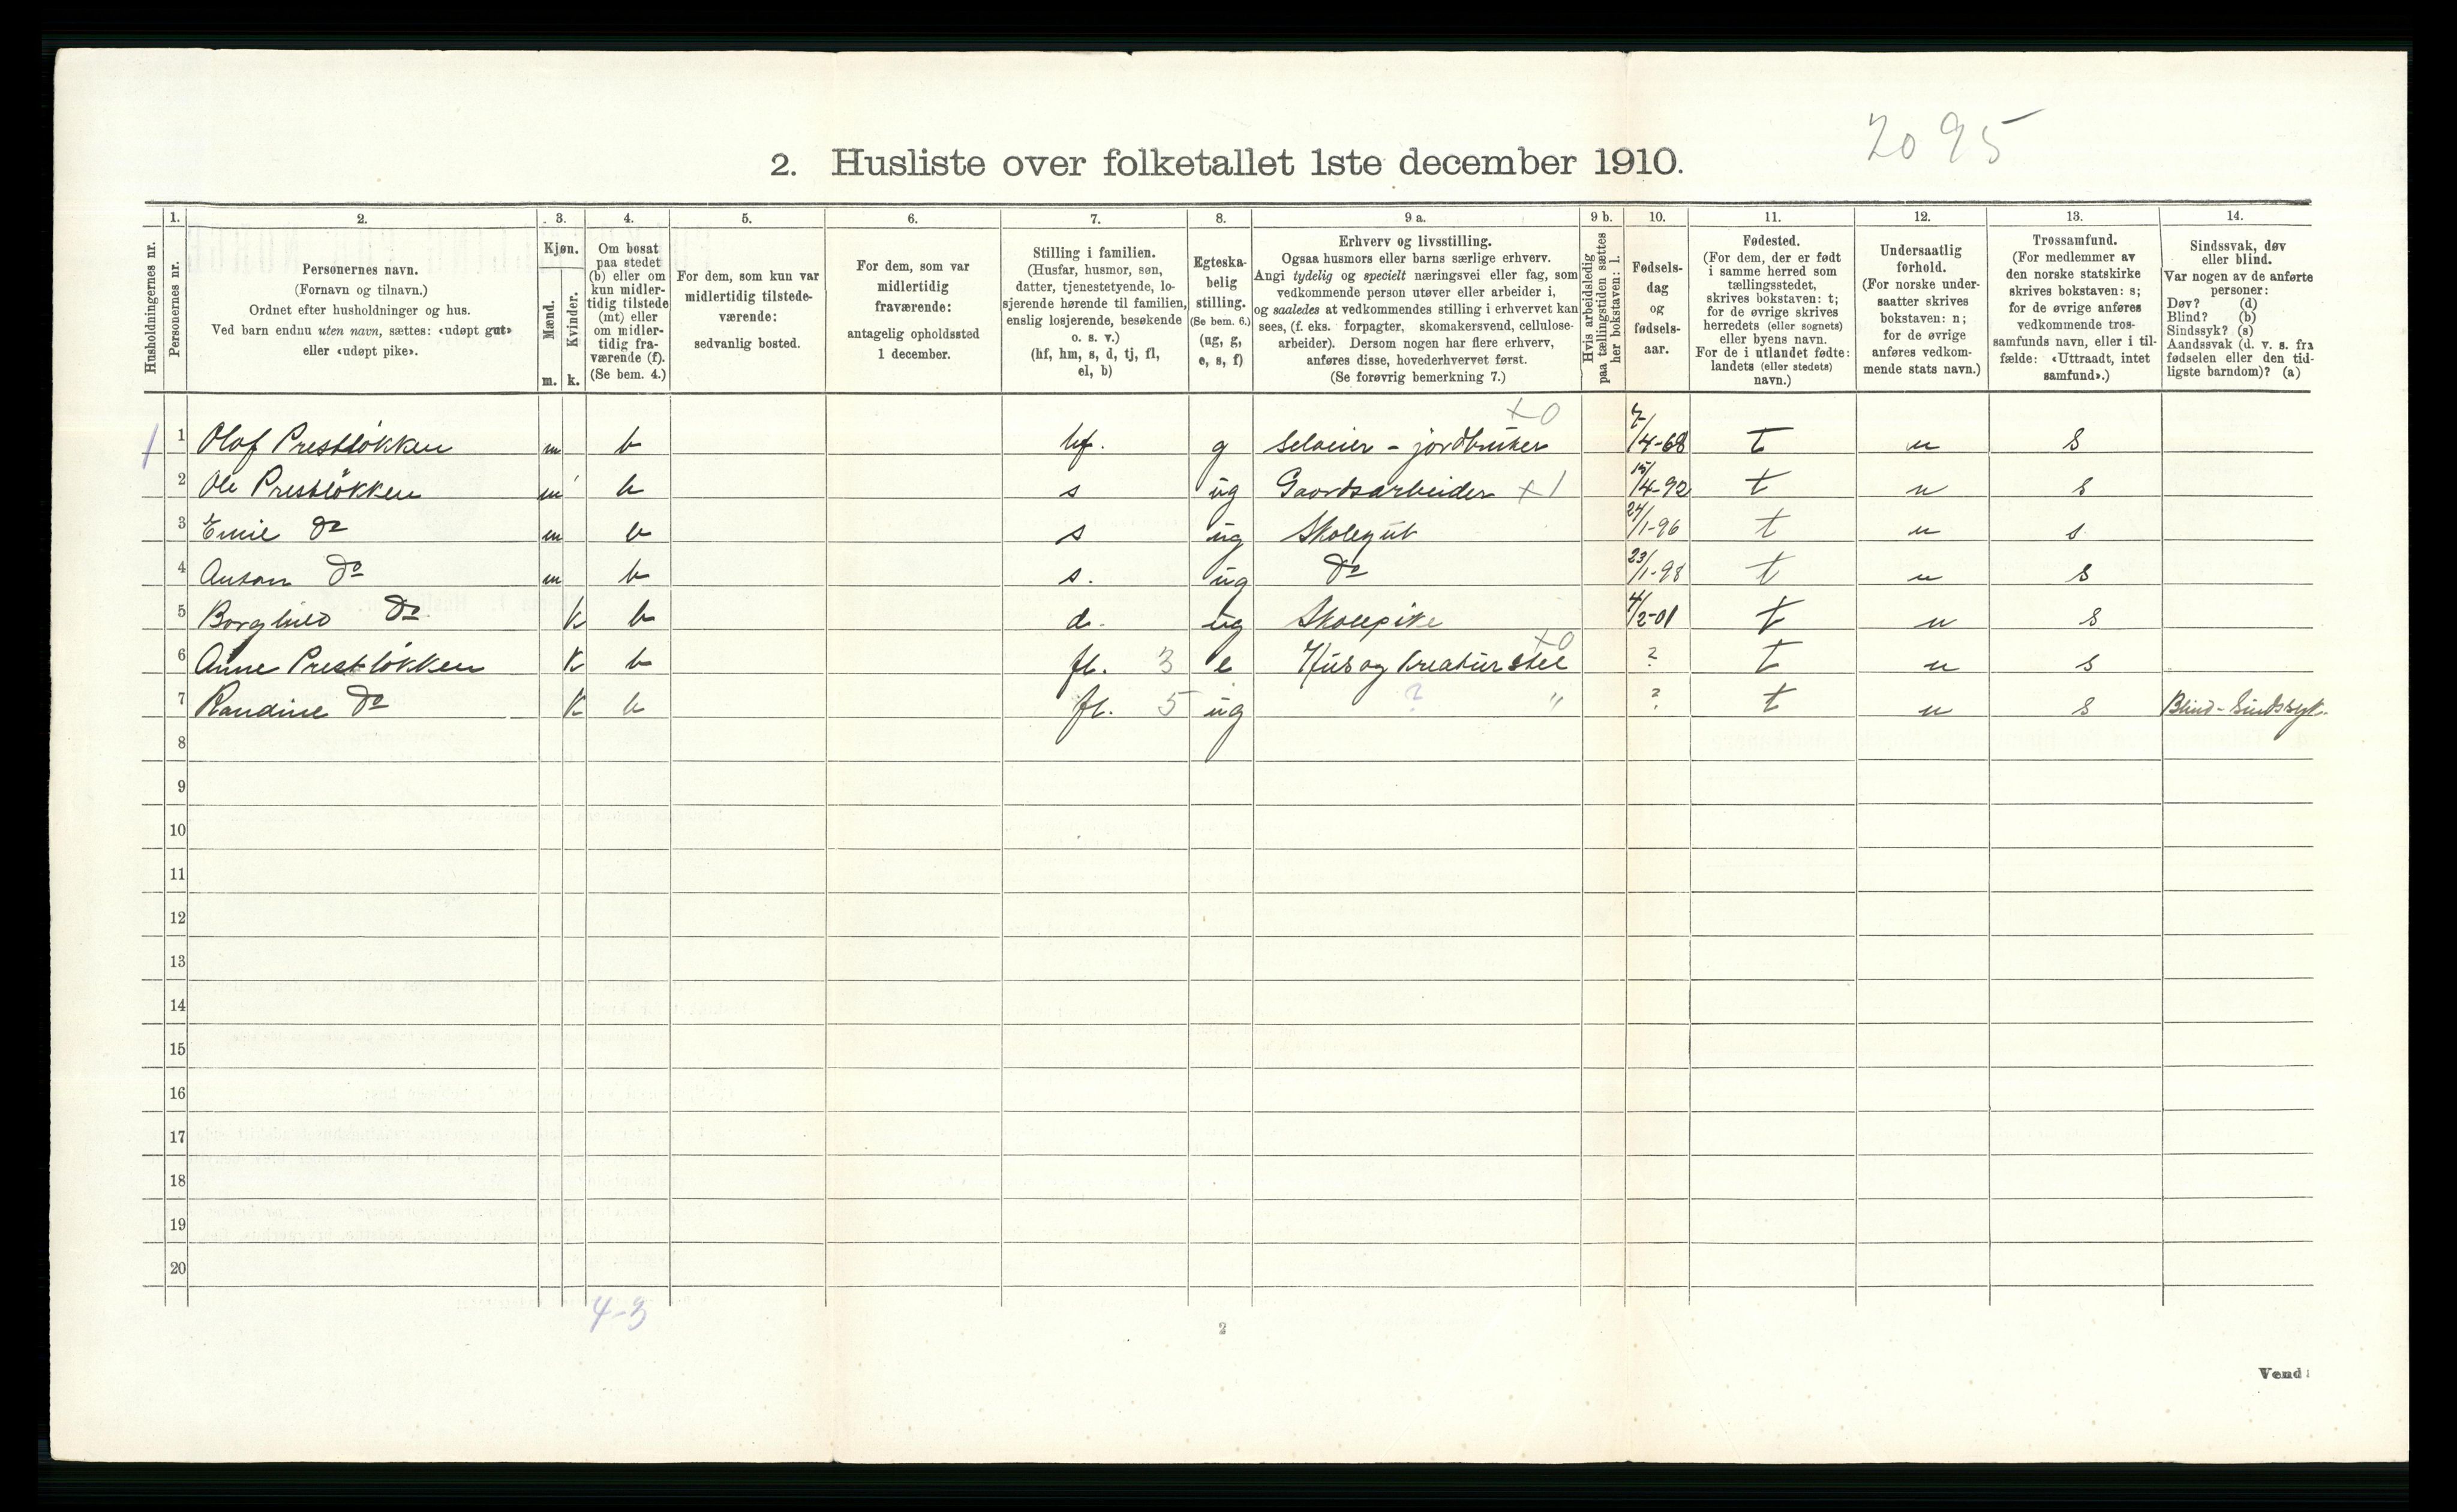 2095
2. Husliste over folketallet 1ste december 1910.
Husholdningernes nr.
1.
Personernes nr.
2.
Personernes navn.
(Fornavn og tilnavn.)
Ordnet efter husholdninger og hus.
Ved barn endnu uten navn, sættes: «udøpt gut»
eller «udøpt pike».
3.
Kjøn.
Mænd.
Kvinder.
m. k.
4.
Om bosat
paa stedet
(b) eller om
kun midler-
tidig tilstede
(mt) eller
om midler-
tidig fra-
værende (f).
(Se bem. 4.)
5.
For dem, som kun var
midlertidig tilstede-
værende:
sedvanlig bosted.
6.
For dem, som var
midlertidig
fraværende:
antagelig opholdssted
1 december.
7.
Stilling i familien.
(Husfar, husmor, søn,
datter, tjenestetyende, lo-
sjerende hørende til familien,
enslig losjerende, besøkende
o. s. v.)
(hf, hm, s, d, tj, fl,
el, b)
8.
Egteska-
belig
stilling.
(Se bem. 6.)
(ug, g,
e, s, f)
9 a.
Erhverv og livsstilling.
Ogsaa husmors eller barns særlige erhverv.
Angi tydelig og specielt næringsvei eller fag, som
vedkommende person utøver eller arbeider i,
og saaledes at vedkommendes stilling i erhvervet kan
sees, (f. eks. forpagter, skomakersvend, cellulose-
arbeider). Dersom nogen har flere erhverv,
anføres disse, hovederhvervet først.
(Se forøvrig bemerkning 7.)
9 b.
Hvis arbeidsledig
paa tællingstiden sættes
her bokstaven: l.
10.
Fødsels-
dag
og
fødsels-
aar.
11.
Fødested.
(For dem, der er født
i samme herred som
tællingsstedet,
skrives bokstaven: t;
for de øvrige skrives
herredets (eller sognets)
eller byens navn.
For de i utlandet fødte:
landets (eller stedets)
navn.)
12.
Undersaatlig
forhold.
(For norske under-
saatter skrives
bokstaven: n;
for de øvrige
anføres vedkom-
mende stats navn.)
13.
Trossamfund.
(For medlemmer av
den norske statskirke
skrives bokstaven: s;
for de øvrige anføres
vedkommende tros-
samfunds navn, eller i til-
fælde: «Uttraadt, intet
samfund».)
14.
Sindssvak, døv
eller blind.
Var nogen av de anførte
personer:
Døv? (d)
Blind? (b)
Sindssyk? (s)
Aandssvak (d. v. s. fra
fødselen eller den tid-
ligste barndom)? (a)
1 1 Olaf Prestløkken m b hf. g Selveier - jordbruker +0 7/4-68 t n s
2 Ole Prestløkken m b s ug Gaardsarbeider +1 15/4-92 t n s
3 Emil Do m b s ug Skolegut 24/1-96 t n s
4 Anton Do m b s. ug Do 23/1-98 t n s
5 Borghild Do k b d. ug Skolepike 4/2-01 t n s
6 Anne Prestløkken k b fl. 3 e Hus og kreaturstel +0 ? t n s
7 Randine Do k b fl. 5 ug ? " ? t n s Blind-Sindssyk.
8
9
10
11
12
13
14
15
16
17
18
19
20
4-3
2
Vend!